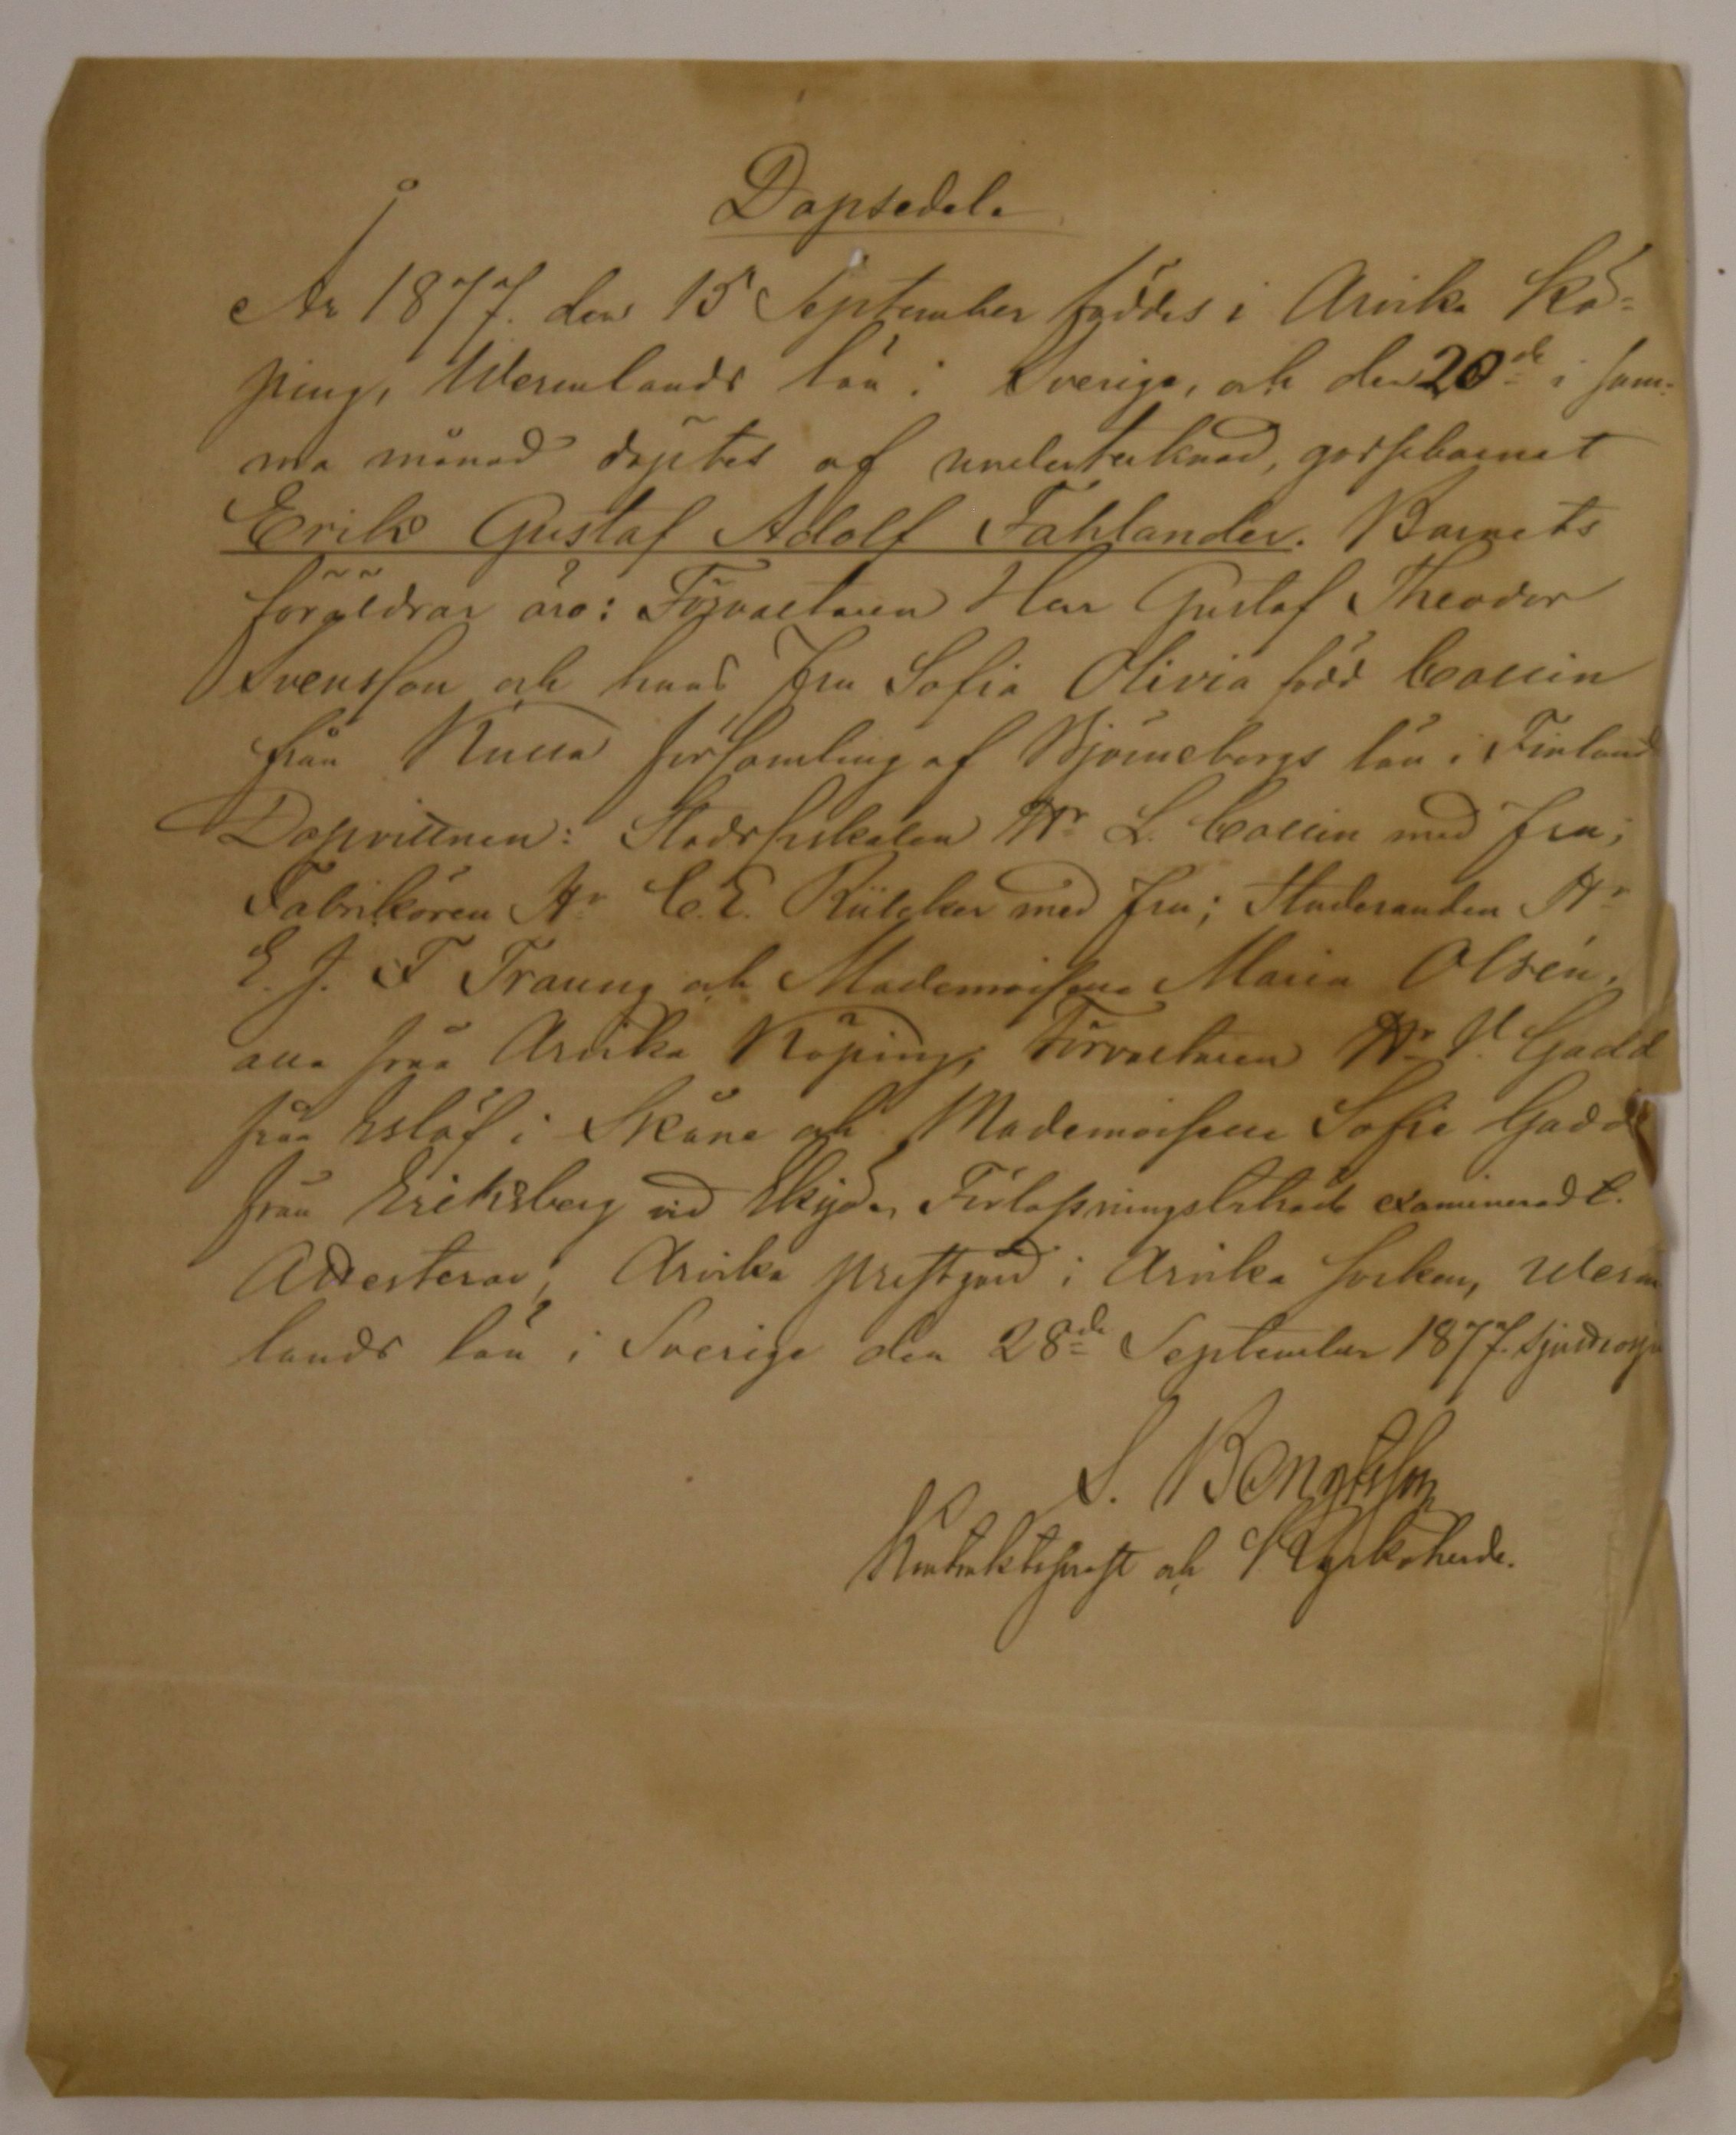 Dopsedel.
År 1877. den 15 September föddes i Arvika Kö=
ping, Wermlands län i Sverige, och den 20de i sam-
ma månad döptes af undertecknad, gossebarnet
Erik Gustaf Adolf Fahlander. Barnets
föräldrar äro: Förvaltaren Herr Gustaf Theodor
Svensson och hans fru Sofia Olivia född Collin
från församling af Björneborgs län i Finland
Dopvittnen: Stadsfiskalen Hr L. Collin med fru;
Fabrikören Hr C. E. med fru; Studeranden Hr
E. J. F Traung och Mademoiselle Maria Olsén,
alla från Arvika Köping, Förvaltaren Hr Gadd
från Eslöf i Skåne och Mademoiselle Sofie Gadd
från Eriksberg vid examinerad t.
Attesterar, Arvika prestgård i Arvika socken, Werm
lands län i Sverige den 28de September 1877.
S. Bengtsson
Kontraktsprost och Kyrkoherde.